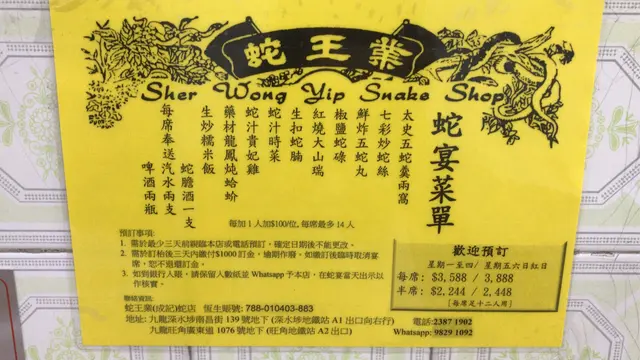 蛇王業
Sher Wong Yip Snake Shop
蛇宴菜單
太史五蛇羹兩窩
七彩炒蛇絲
鮮炸五蛇丸
椒鹽蛇碌
紅燒大山瑞
生扣蛇腩
蛇汁時菜
蛇汁貴妃雞
藥材龍鳳炖蛤蚧
生炒糯米飯
蛇膽酒一支
每席奉送汽水兩支
啤酒兩瓶
每加1人加$100/位, 每席最多14人
預訂事項:
1. 需於最少三天前親臨本店或電話預訂, 確定日期後不能更改。
2. 需於訂枱後三天內繳付$1000訂金, 逾期作廢。如繳訂後臨時取消宴席, 恕不退還訂金。
3. 如到銀行入賬, 請保留入數紙並 Whatsapp 予本店, 在蛇宴當天出示以作核實。
歡迎預訂
星期一至四/ 星期五六日紅日
每席: $3,588 / 3,888
半席: $2,244 / 2,448
[每席足十二人用]
聯絡資訊:
蛇王業(成記)蛇店 恆生賬號: 788-010403-883
地址: 九龍深水埗南昌街 139 號地下 (深水埗地鐵站 A1 出口向右行)
九龍旺角廣東道 1076 號地下 (旺角地鐵站 A2 出口)
電話:2387 1902
Whatsapp: 9829 1092